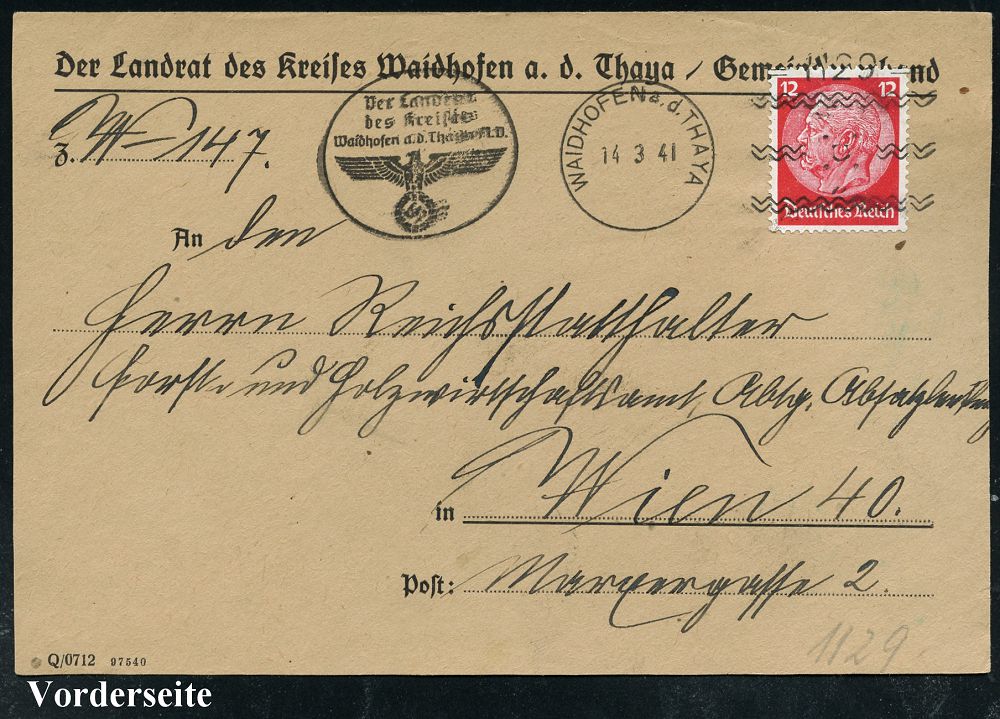 Der Landrat des Kreises Waidhofen a. d. Thaya / Gemeindeverband
1129
Z. W-147.
Der Landrat
des Kreises
Waidhofen a.d. Thaya N.D.
WAIDHOFEN a. d. THAYA
14 3 41
12 12
Deutsches Reich
An den
Herrn Reichsstatthalter
Forst- und Holzwirtschaftsamt, Abtg. Absatzlenkung
in Wien 40.
Post: Marxergasse 2.
1129.
Q/0712 97540
Vorderseite